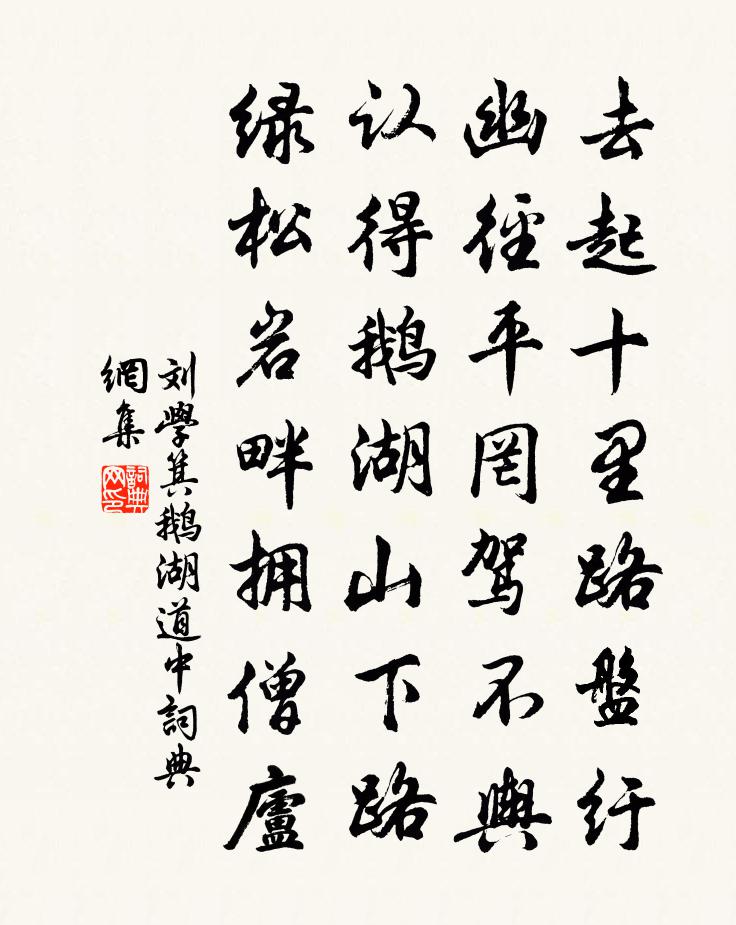 去起十里路盤紆
幽徑平罔駕不輿
认得鹅湖山下路
绿松岩畔拥僧廬
刘學箕鹅湖道中詞典
網集
詞典
网印